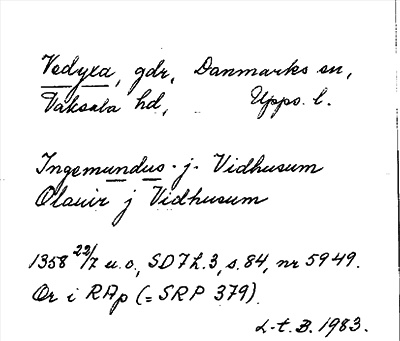 Vedyxa, gdr, Danmarks sn,
Vaksala hd, Upps. l.
Ingemundus j Vidhusum
Olauir j Vidhusum
1358 22/7 u.o., SD 7 h.3, s. 84, nr 5949.
Or i RAp (= SRP 379).
L-t. B. 1983.